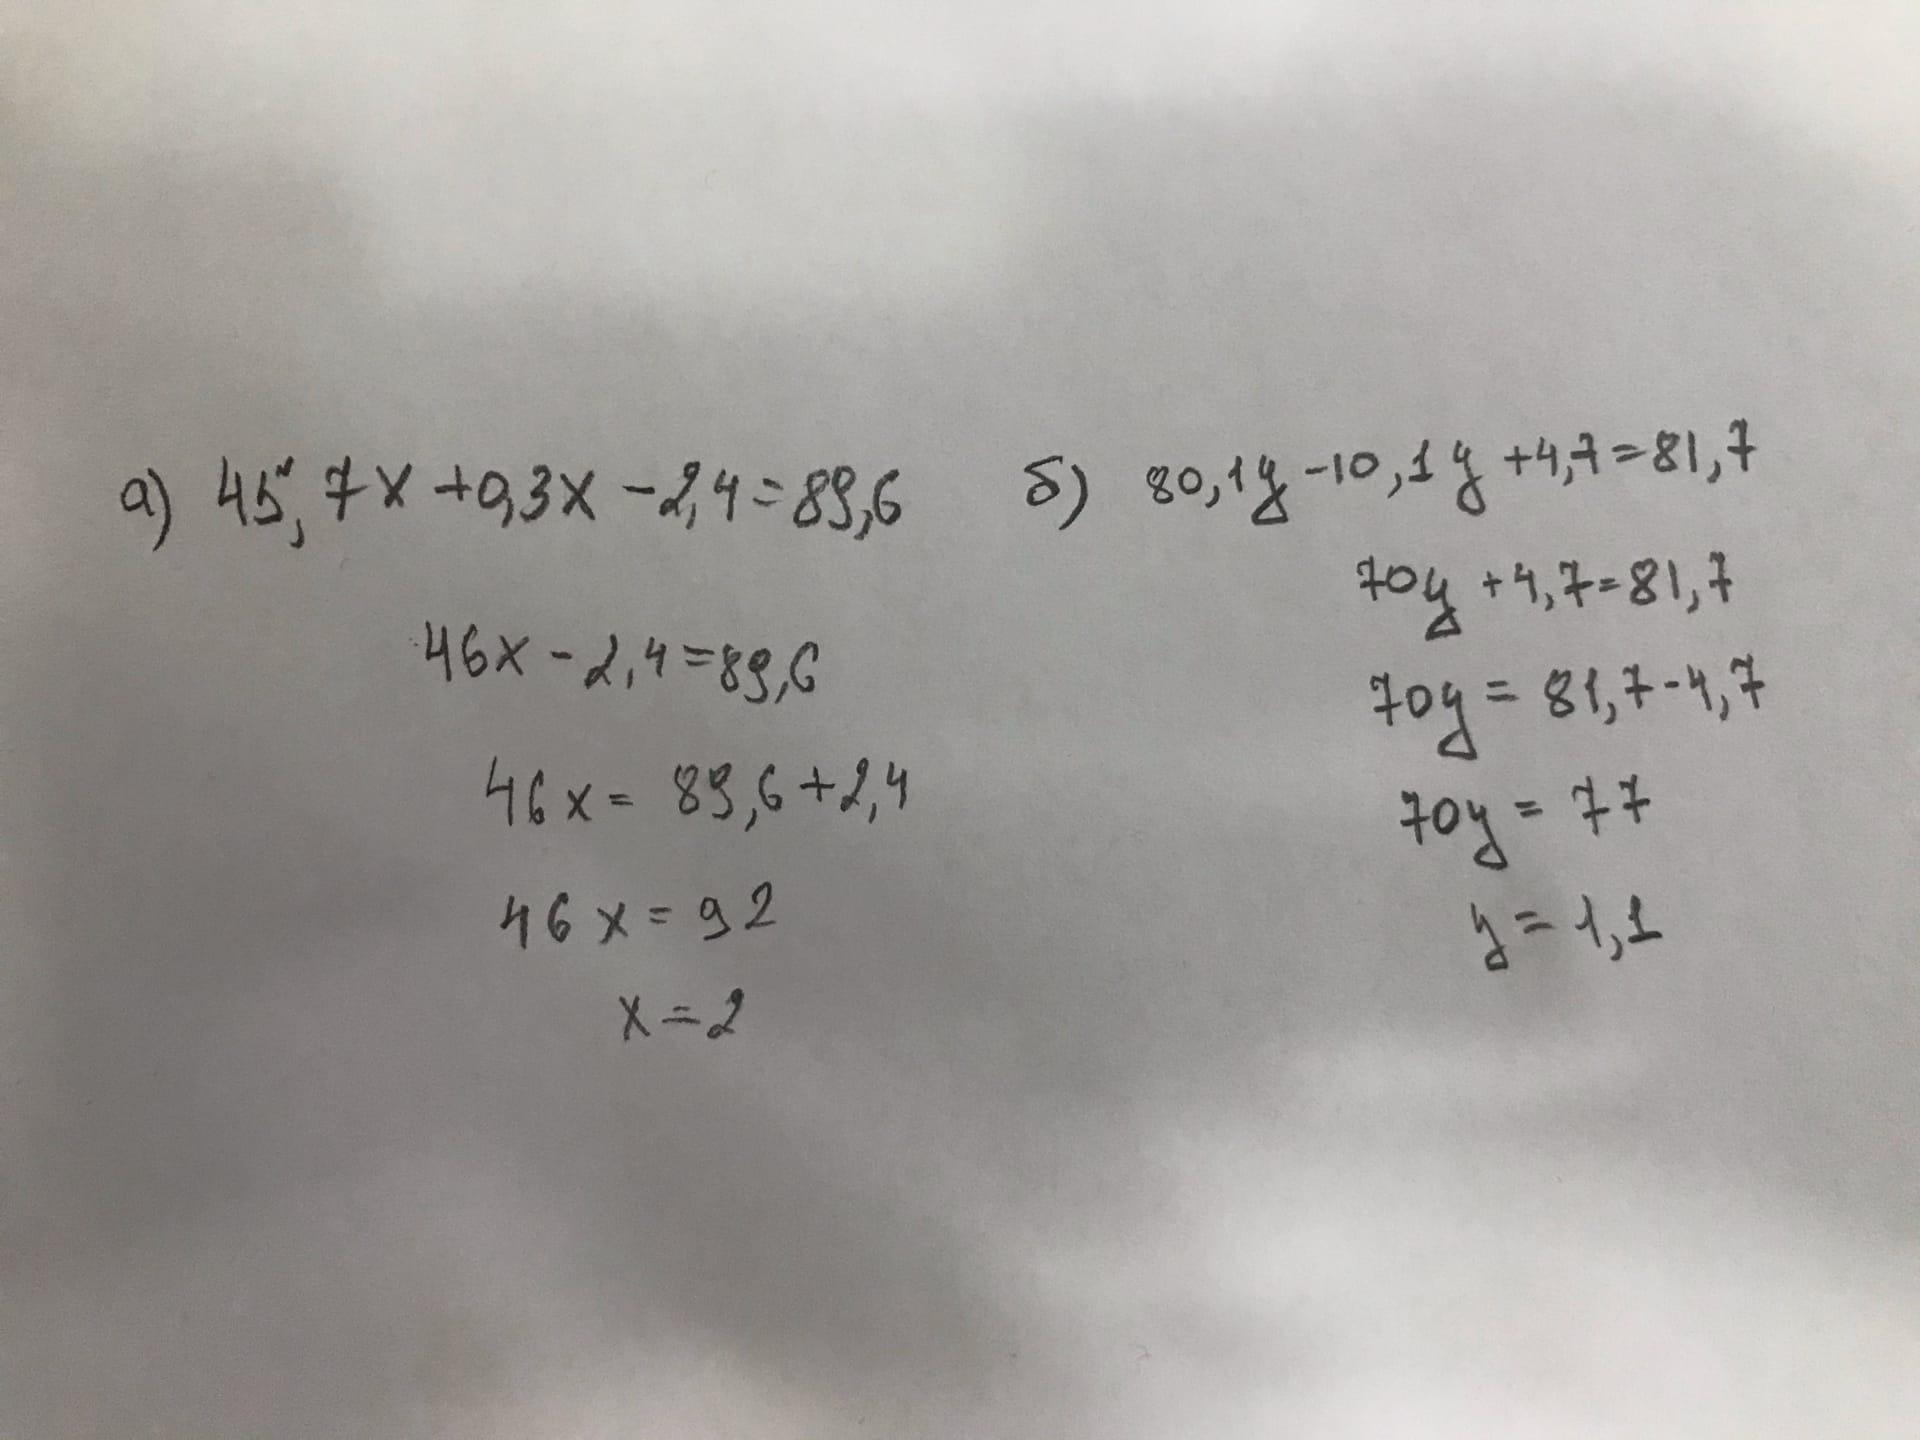 а) 45,7x + 0,3x - 2,4 = 89,6
46x - 2,4 = 89,6
46x = 89,6 + 2,4
46x = 92
x = 2
б) 80,1y - 10,1y + 4,7 = 81,7
70y + 4,7 = 81,7
70y = 81,7 - 4,7
70y = 77
y = 1,1